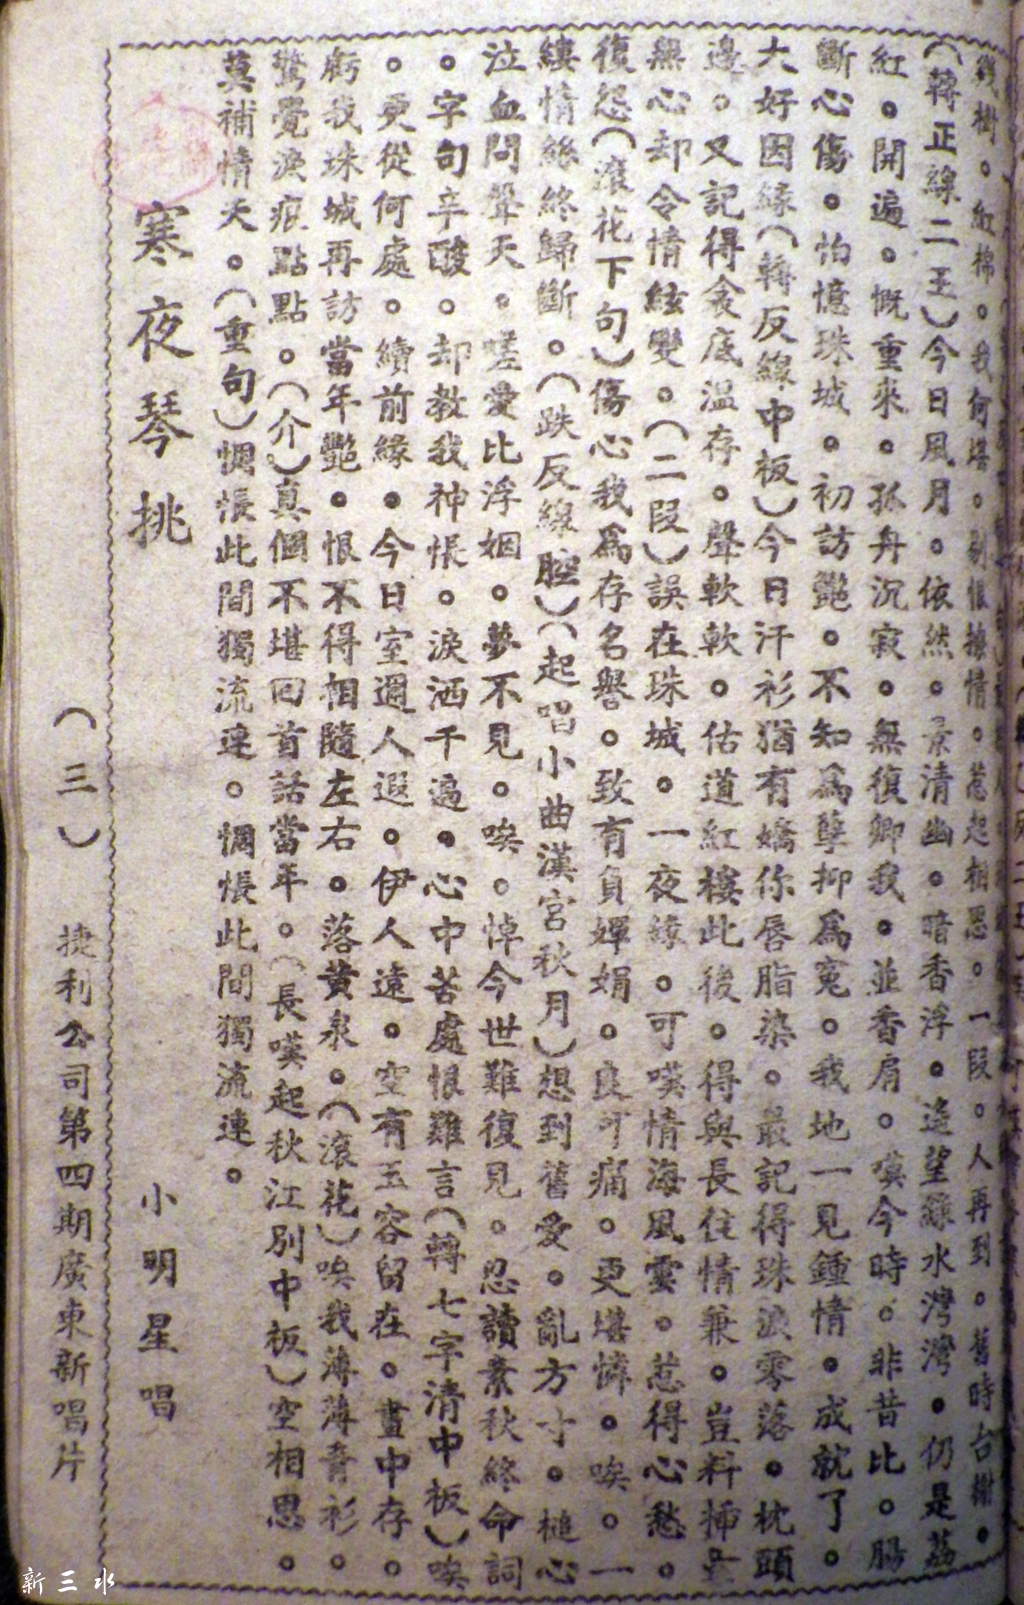 幾樹。紅棉。我何堪。剔恨撩情。惹起相思。一段。人再到。舊時台榭。
(轉正線二王)今日風月。依然。景清幽。暗香浮。遙望綠水灣灣。仍是荔
紅。開遍。慨重來。孤舟沉寂。無復卿我。並香肩。嘆今時。非昔比。腸
斷心傷。怕憶珠城。初訪艷。不知爲孽抑爲寃。我地一見鍾情。成就了。
大好因緣(轉反線中板)今日汗衫猶有嬌你唇脂染。最記得珠淚零落。枕頭
邊。又記得衾底溫存。聲軟軟。估道紅樓此後。得與長住情兼。豈料揷
無心却令情絃變。(二段)誤在珠城。一夜緣。可嘆情海風雲。惹得心愁。
復怨(滾花下句)傷心我爲存名譽。致有負嬋娟。良可痛。更堪憐。唉。一
縷情絲終歸斷。(跌反線腔)(起唱小曲漢宮秋月)想到舊愛。亂方寸。槌心
泣血問聲天。嗟愛比浮姻。夢不見。唉。悼今世難復見。忍讀素秋終命詞
。字句辛酸。却教我神悵。淚洒千遍。心中苦處恨難言(轉七字清中板)唉
。更從何處。續前緣。今日室邇人遐。伊人遠。空有玉容留在。畫中存。
虧我珠城再訪當年艷。恨不得相隨左右。落黃泉。(滾花)唉我薄薄青衫。
驚覺淚痕點點。(介)真個不堪回首話當年。(長嘆起秋江別中板)空相思。
莫補情天。(重句)惆悵此間獨流連。惆悵此間獨流連。
寒夜琴挑 小明星唱
(三) 捷利公司第四期廣東新唱片
新三水